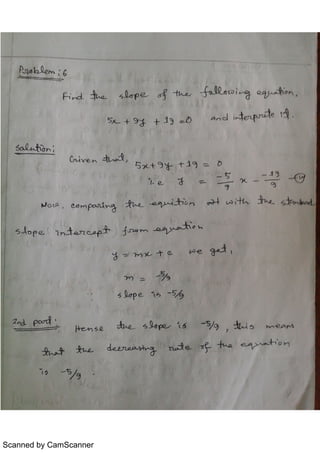 Problem: 6
Find the slope of the following equation,
5x + 9y + 19 = 0 and interprete it.
Solution:
Given that, 5x + 9y + 19 = 0
i.e y = -5/9 x - 19/9
Now, comparing the equition with the standard
slope intercept from equation
y = mx + c we get,
m = -5/9
slope is -5/9
2nd part:
Hense the slope is -5/9, this means
that the decreasing rate of the equation
is -5/9.
Scanned by CamScanner